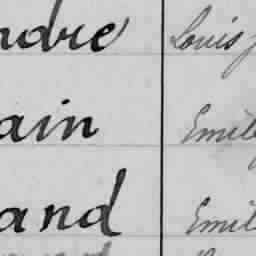 ndre Louis
ain Emil
and Emil